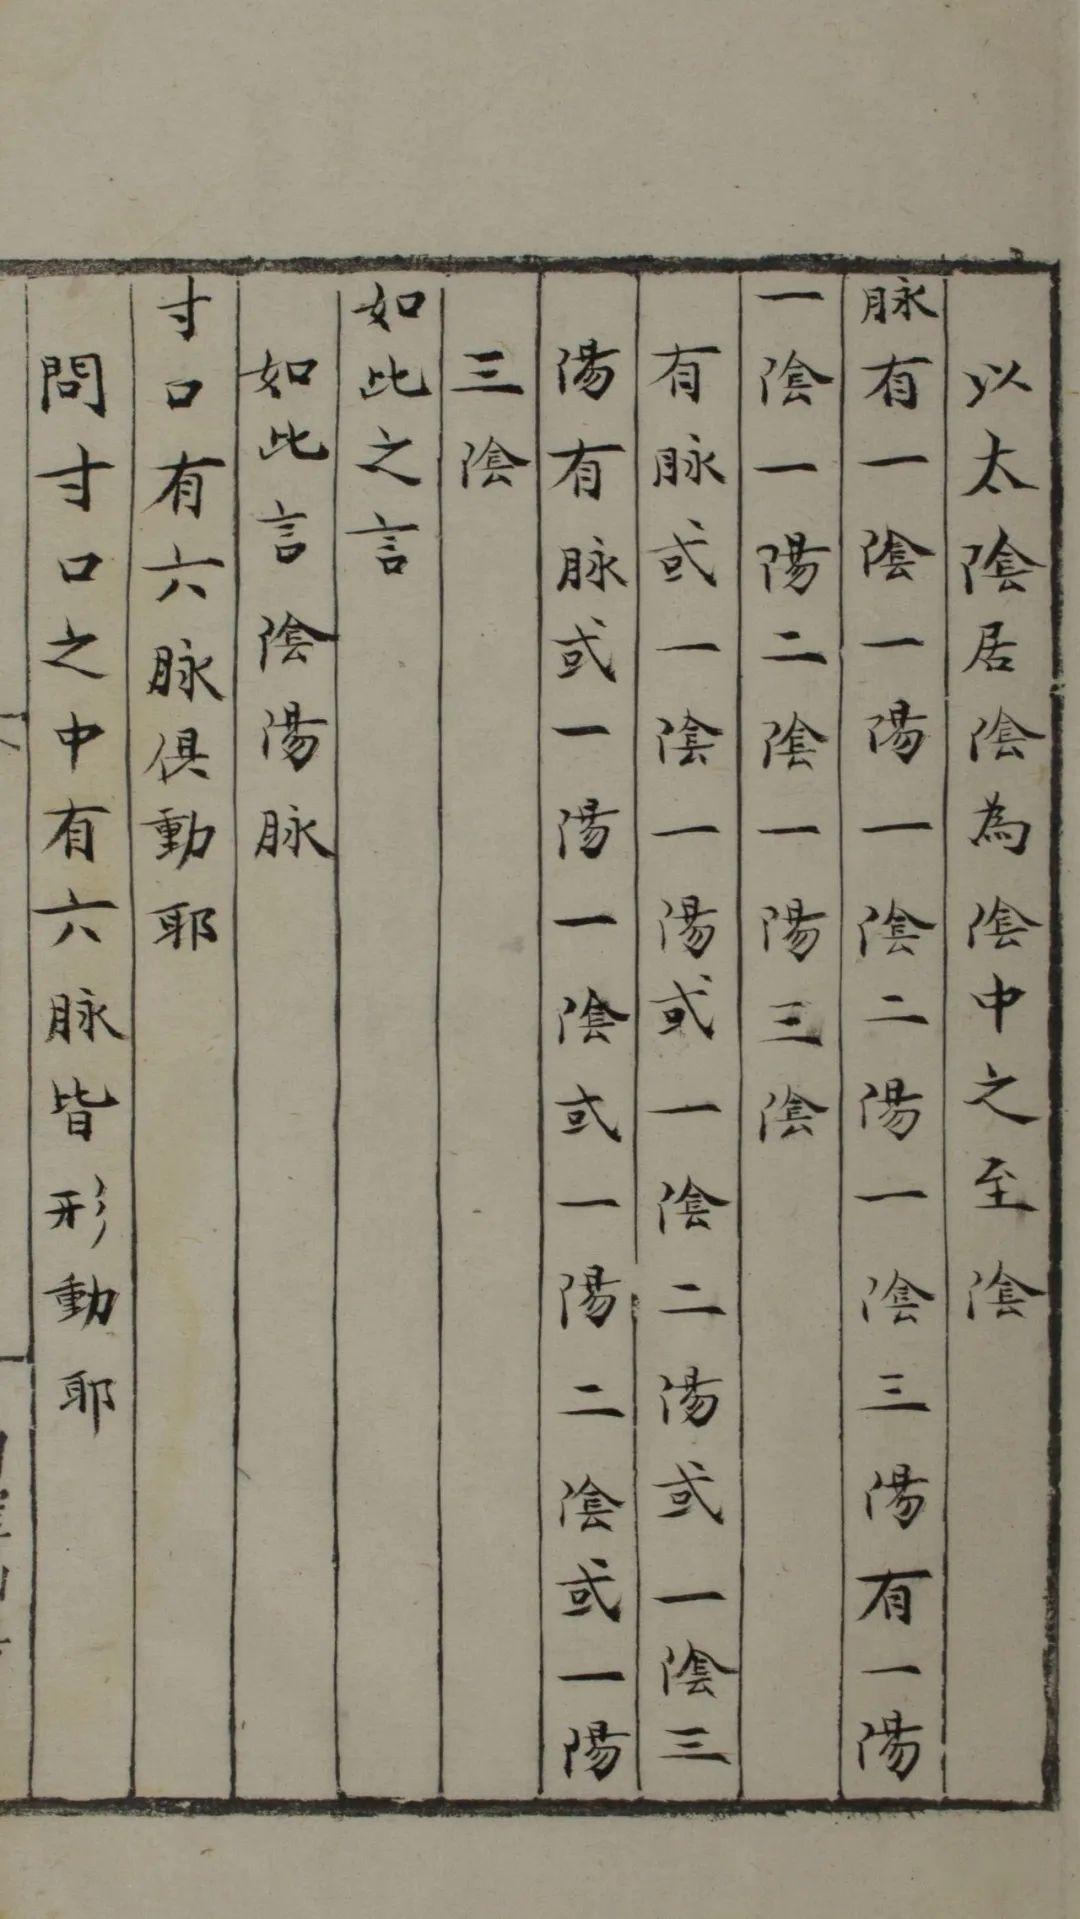 以太陰居陰為陰中之至陰
脉有一陰一陽一陰二陽一陰三陽有一陽
一陰一陽二陰一陽三陰
有脉或一陰一陽或一陰二陽或一陰三
陽有脉或一陽一陰或一陽二陰或一陽
三陰
如此之言
如此言陰陽脉
寸口有六脉俱動耶
問寸口之中有六脉皆形動耶